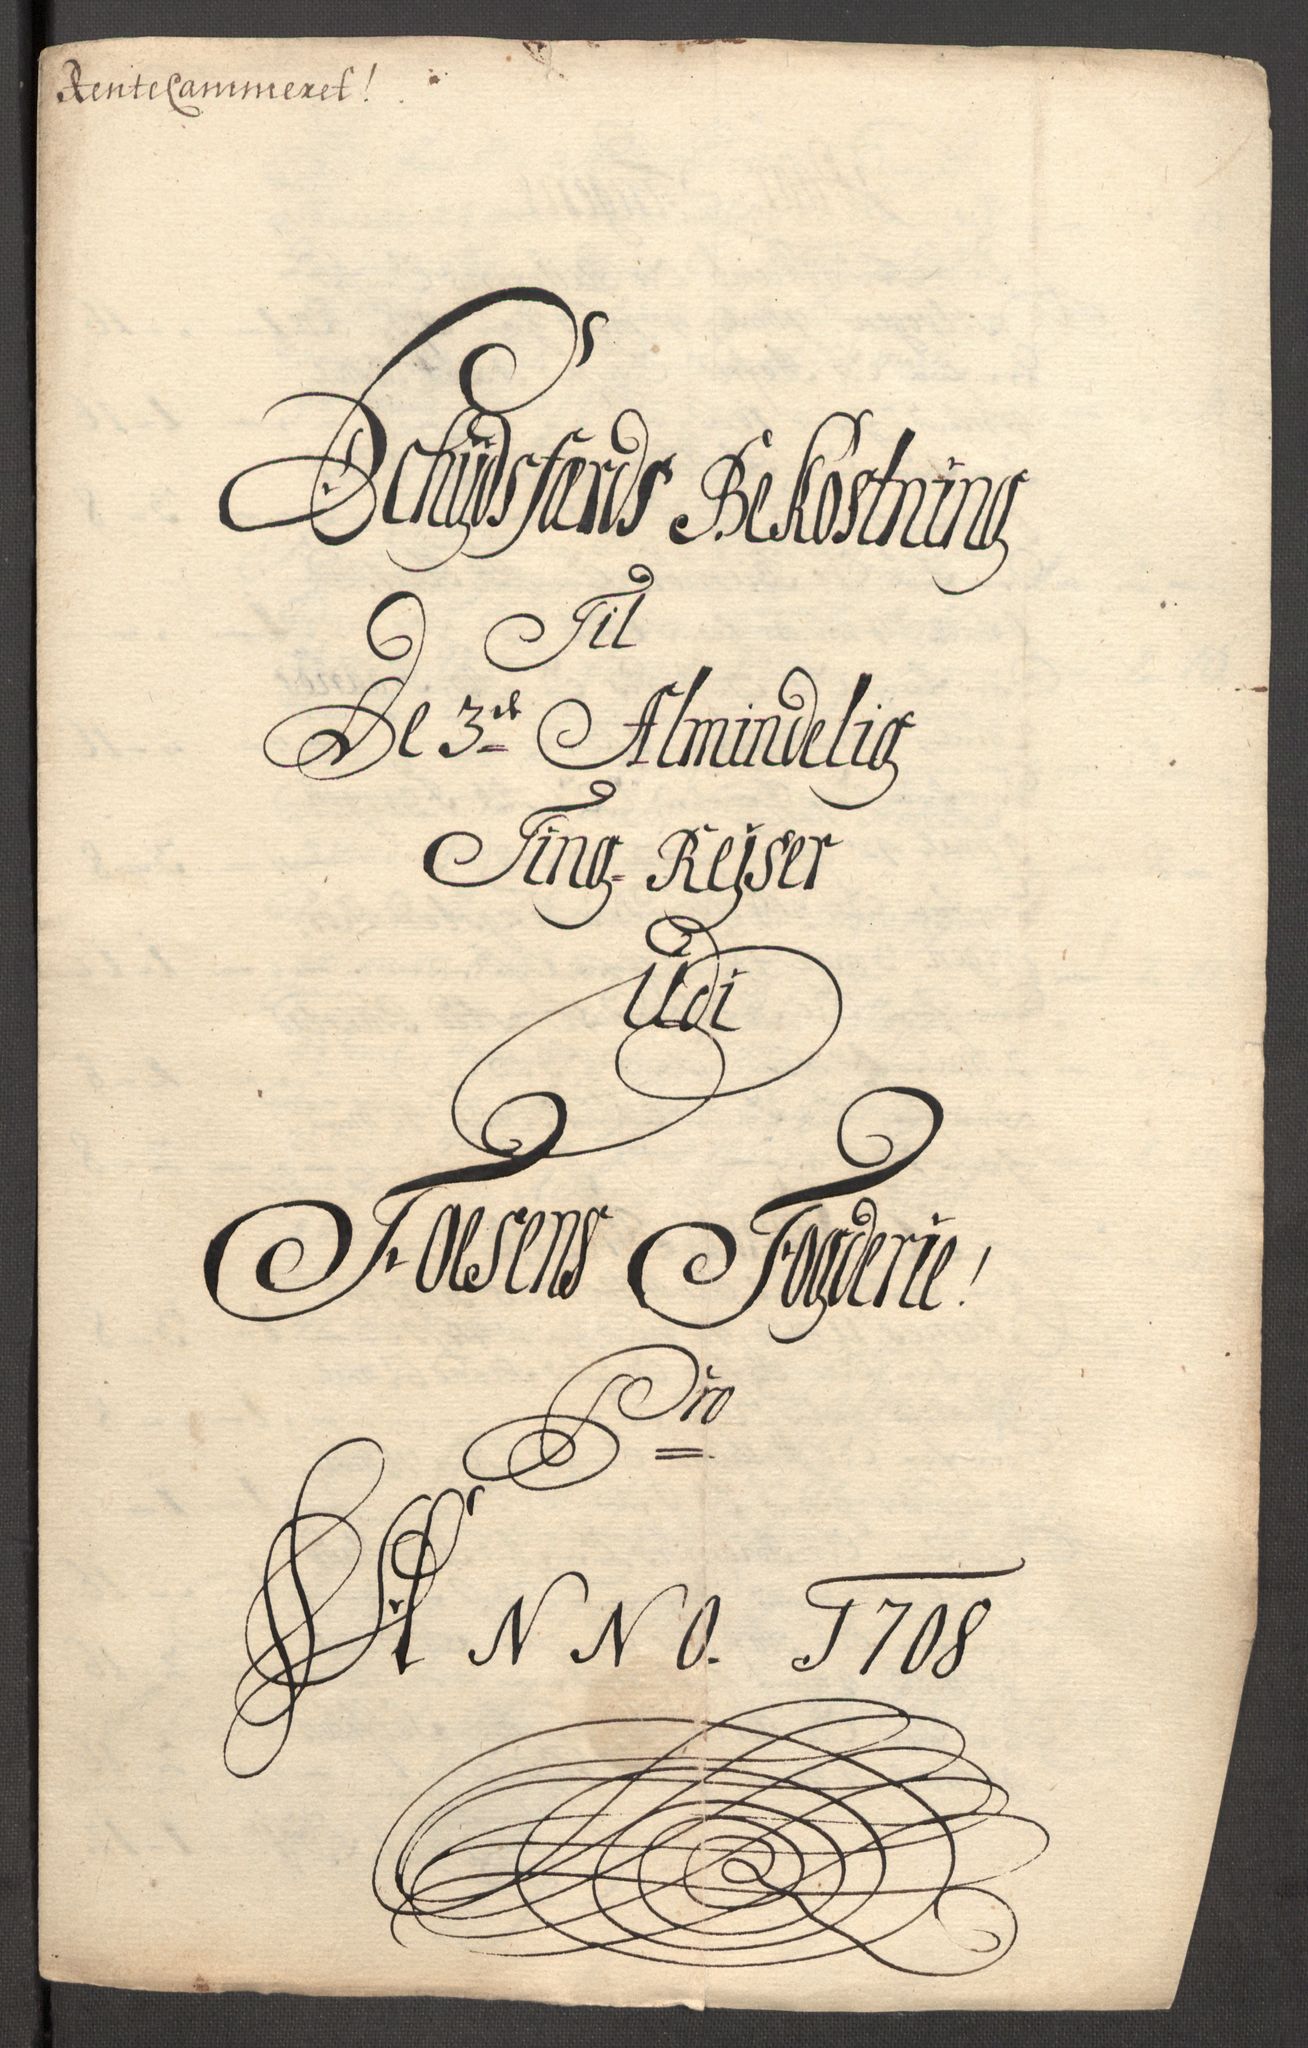 RenteCammeret!
Schydsferds Bekostning
Til
De 3de Almindelig
Ting-Rejser
Udi
Foesens Fogderie!
Pro
ANNO. 1708